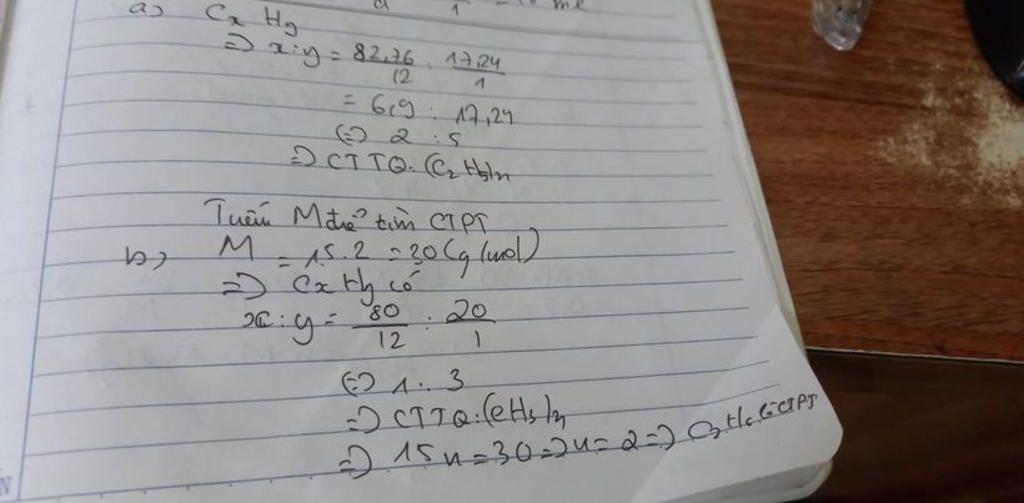 a) Cx Hy
=> x:y = 82,76/12 : 17,24/1
= 6,9 : 17,24
<=> 2 : 5
=> CTTQ: (C2H5)n
M để tìm CTPT
b) M = 15.2 = 30 (g/mol)
=> Cx Hy có
x:y = 80/12 : 20/1
<=> 1 : 3
=> CTTQ: (CH3)n
=> 15n = 30 => n = 2 =>